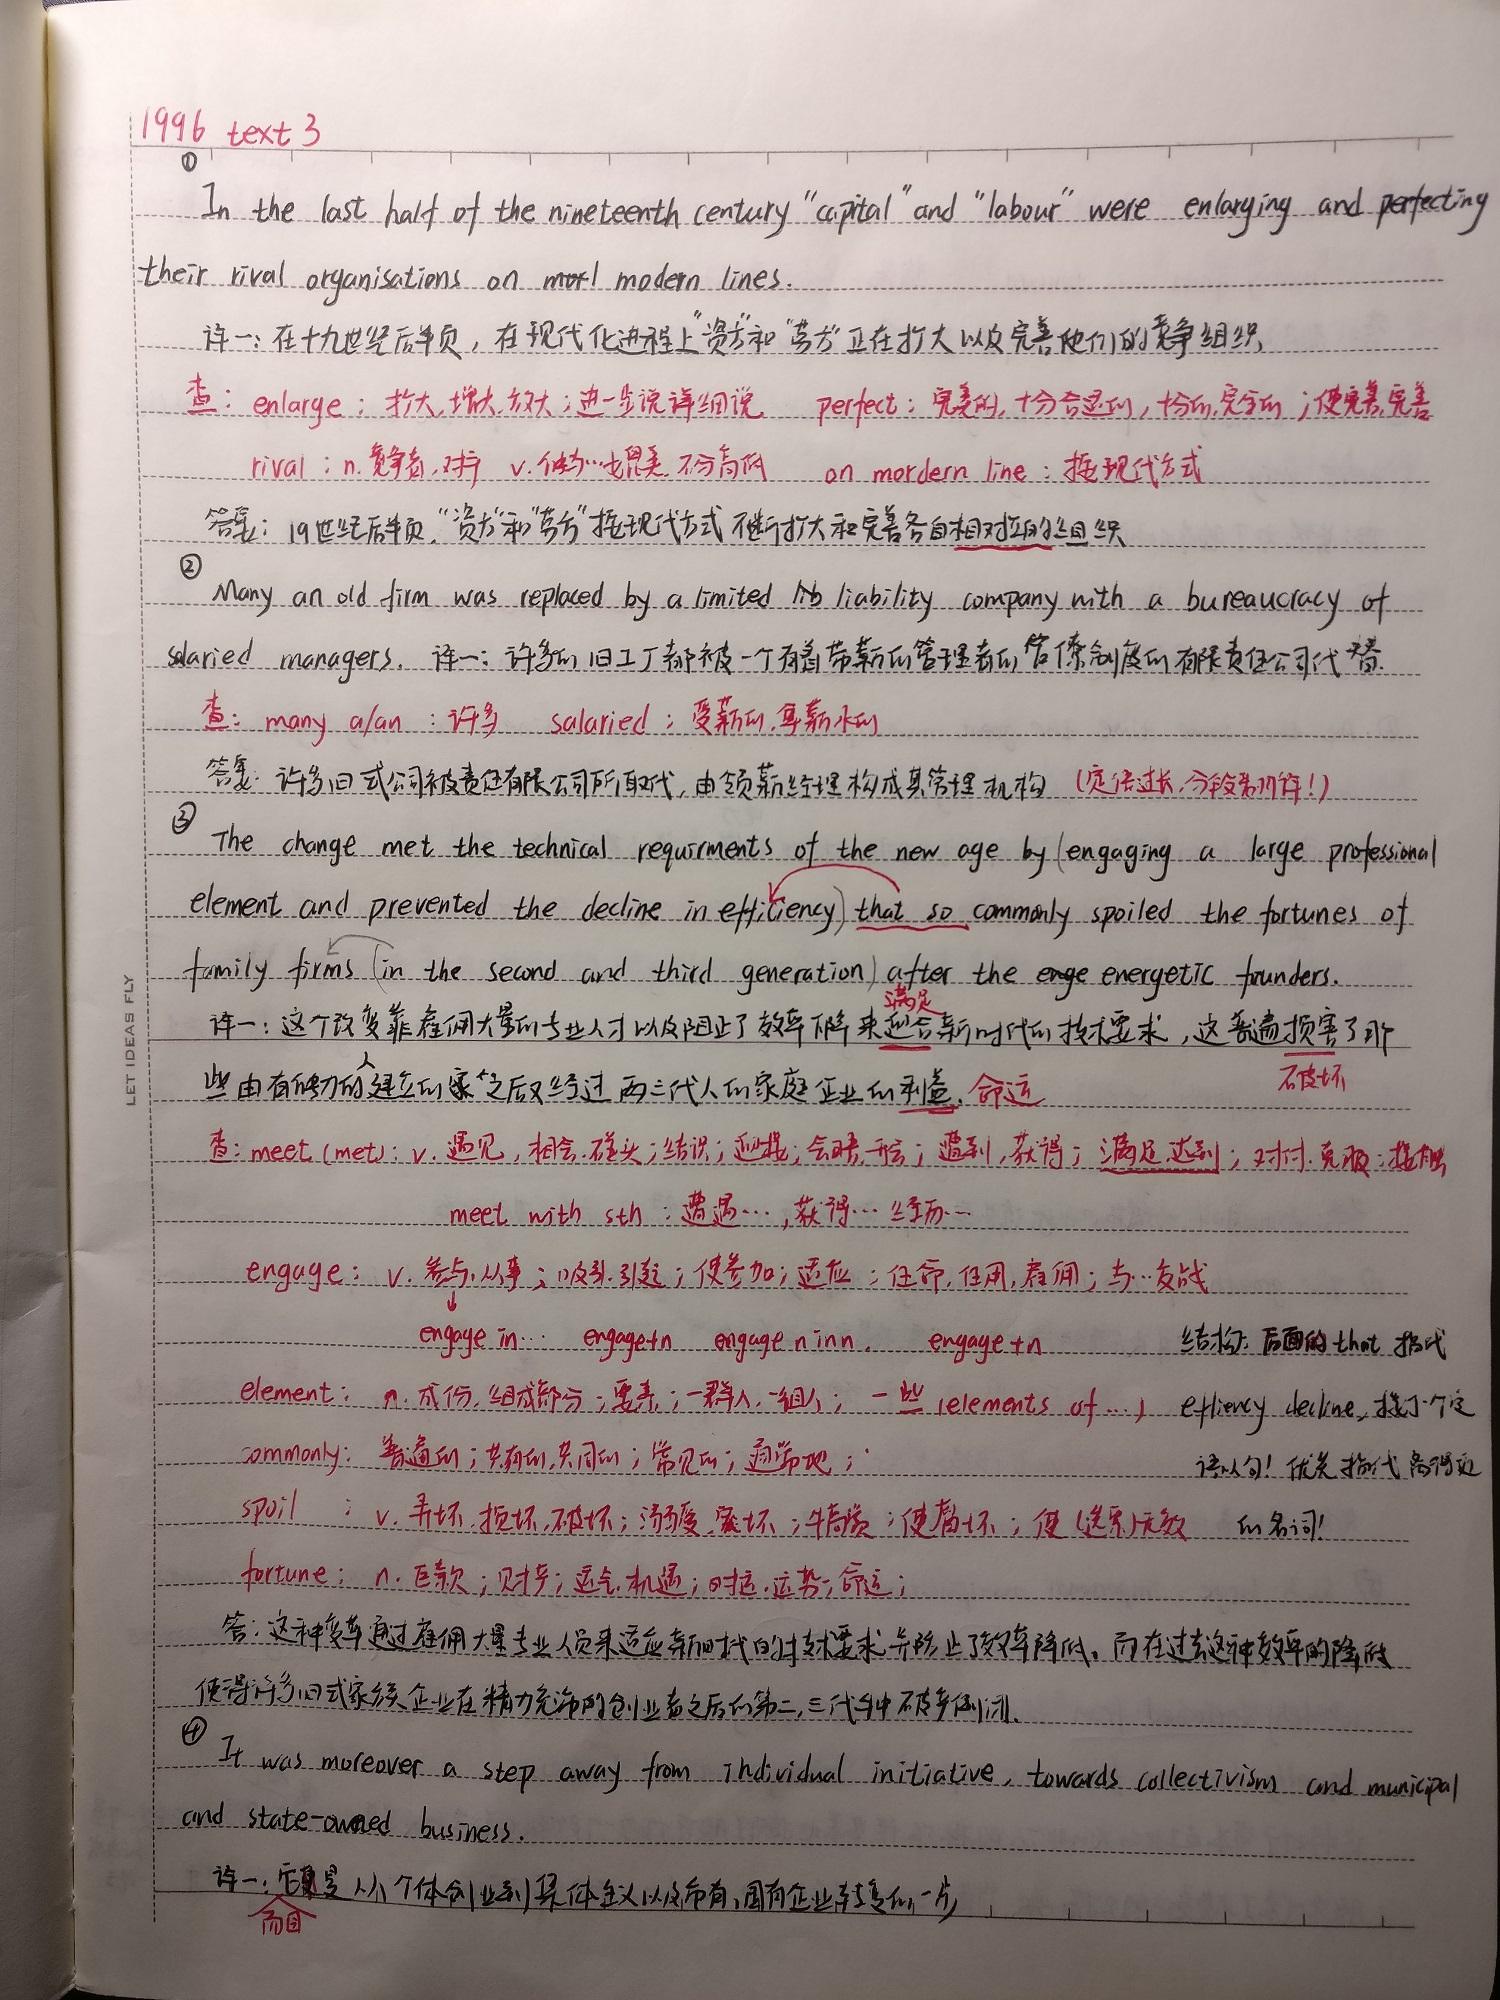 1996 text 3
①
In the last half of the nineteenth century "capital" and "labour" were enlarging and perfecting
their rival organisations on modern lines.
译一：在十九世纪后半页，在现代化进程上"资方"和"劳方"正在扩大以及完善他们的竞争组织
查：enlarge：扩大,增大,放大；进一步说详细说 perfect：完美的,十分合适的,十分的,完全的；使完善,完善
rival：n.竞争者,对手 v.使与…相媲美,不分高低 on mordern line：按现代方式
答案：19世纪后半页,"资方"和"劳方"按现代方式不断扩大和完善各自相对立的组织
②
Many an old firm was replaced by a limited liability company with a bureaucracy of
salaried managers. 译一：许多的旧工厂都被一个有着带薪的管理者的官僚制度的有限责任公司代替.
查：many a/an：许多 salaried：受薪的,拿薪水的
答案：许多旧式公司被责任有限公司所取代,由领薪经理构成其管理机构（定语过长,分段翻译!）
③
The change met the technical requirments of the new age by (engaging a large professional
element and prevented the decline in efficiency) that so commonly spoiled the fortunes of
family firms (in the second and third generation) after the energetic founders.
满足
译一：这个改变靠雇佣大量的专业人才以及阻止了效率下降来迎合新时代的技术要求，这普遍损害了那
些由有能力的人建立的 之后又经过两三代人的家庭企业的利益. 命运
破坏
查：meet (met)：v. 遇见,相会,碰头；结识；迎接；会晤,开会；遭到,获得；满足,达到；对付,克服；接触
meet with sth：遭遇…,获得…经历…
engage：v. 参与,从事；吸引,引起；使参加；适应；任命,任用,雇佣；与…交战
engage in… engage+n engage n in n. engage+n 结构：后面的that 指代
element：n. 成份,组成部分；要素；一群人,一组人；一些（elements of…） effiency decline,接了个定
commonly：普遍的；共有的,共同的；常见的；通常地； 语从句！优先指代离得近
spoil：v. 弄坏,损坏,破坏；溺爱,宠坏；变质；使腐坏；使(选票)无效 的名词！
fortune：n. 巨款；财产；运气,机遇；时运,运势；命运；
答：这种变革通过雇佣大量专业人员来适应新时代的技术要求并防止了效率降低，而在过去这种效率的降低
使得许多旧式家族企业在精力充沛的创业者之后的第二,三代手中破产倒闭.
④
It was moreover a step away from individual initiative, towards collectivism and municipal
and state-owned business.
译一：它是从个体创业到集体主义以及市有,国有企业转变的一步
而且
LET IDEAS FLY